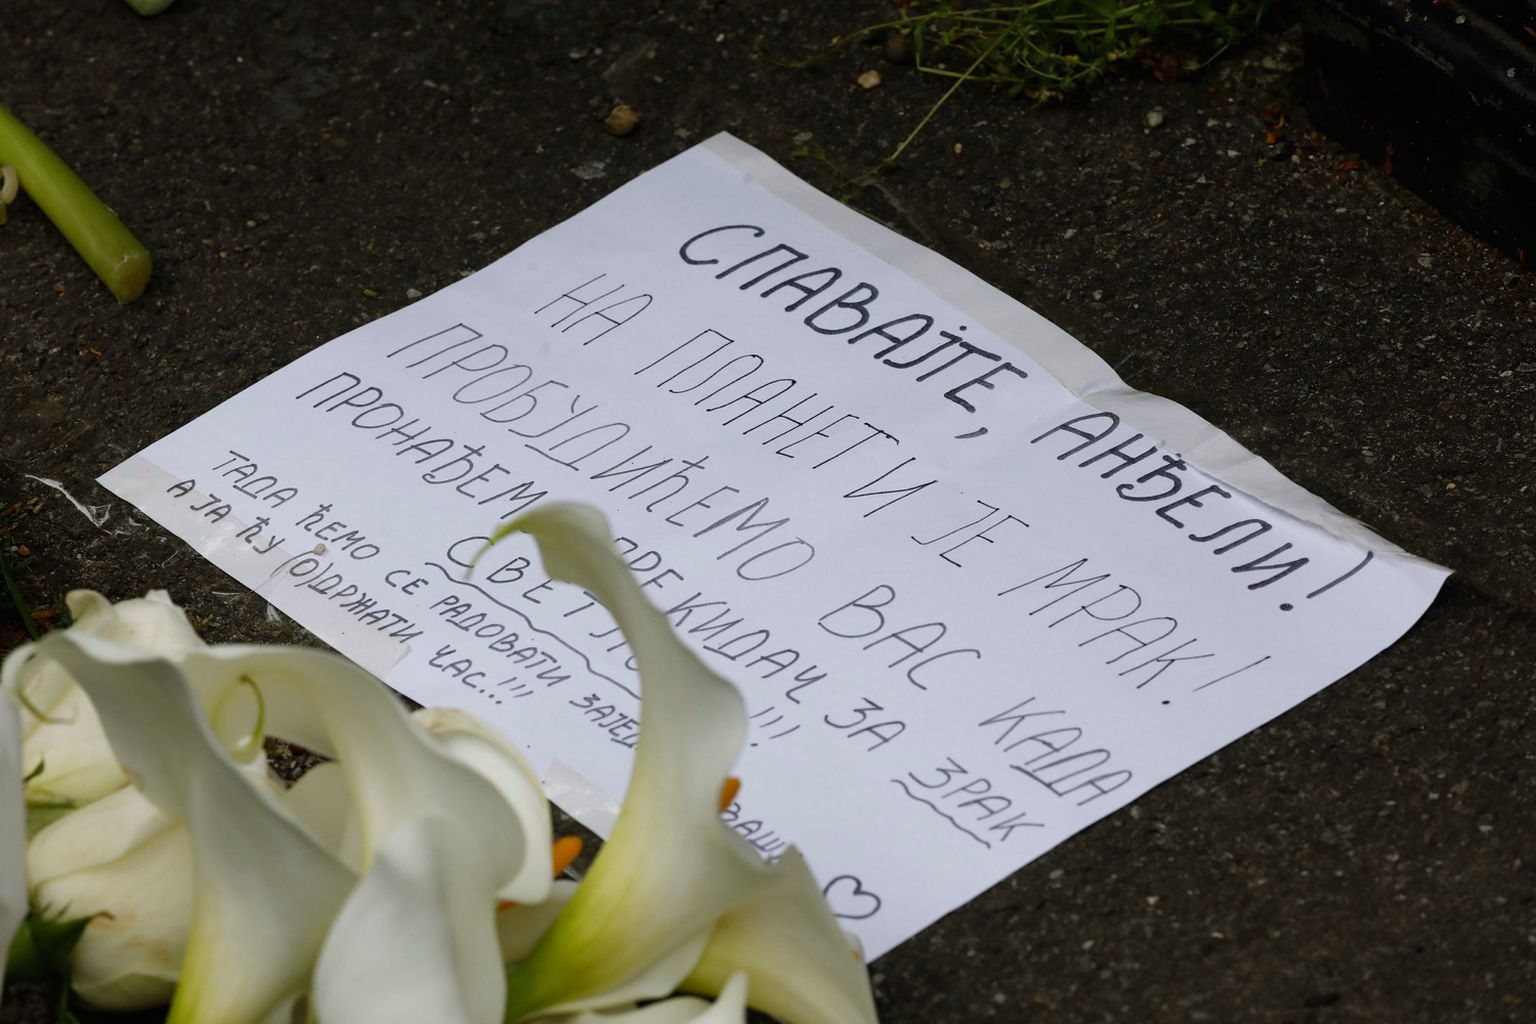 СПАВАЈТЕ, АНЂЕЛИ!
НА ПЛАНЕТИ ЈЕ МРАК!
ПРОБУДИЋЕМО ВАС КАДА
ПРОНАЂЕМ ПРЕКИДАЧ ЗА ЗРАК
!!!
ТАДА ЋЕМО СЕ РАДОВАТИ
А ЈА ЋУ (О)ДРЖАТИ ЧАС...!!!
♡